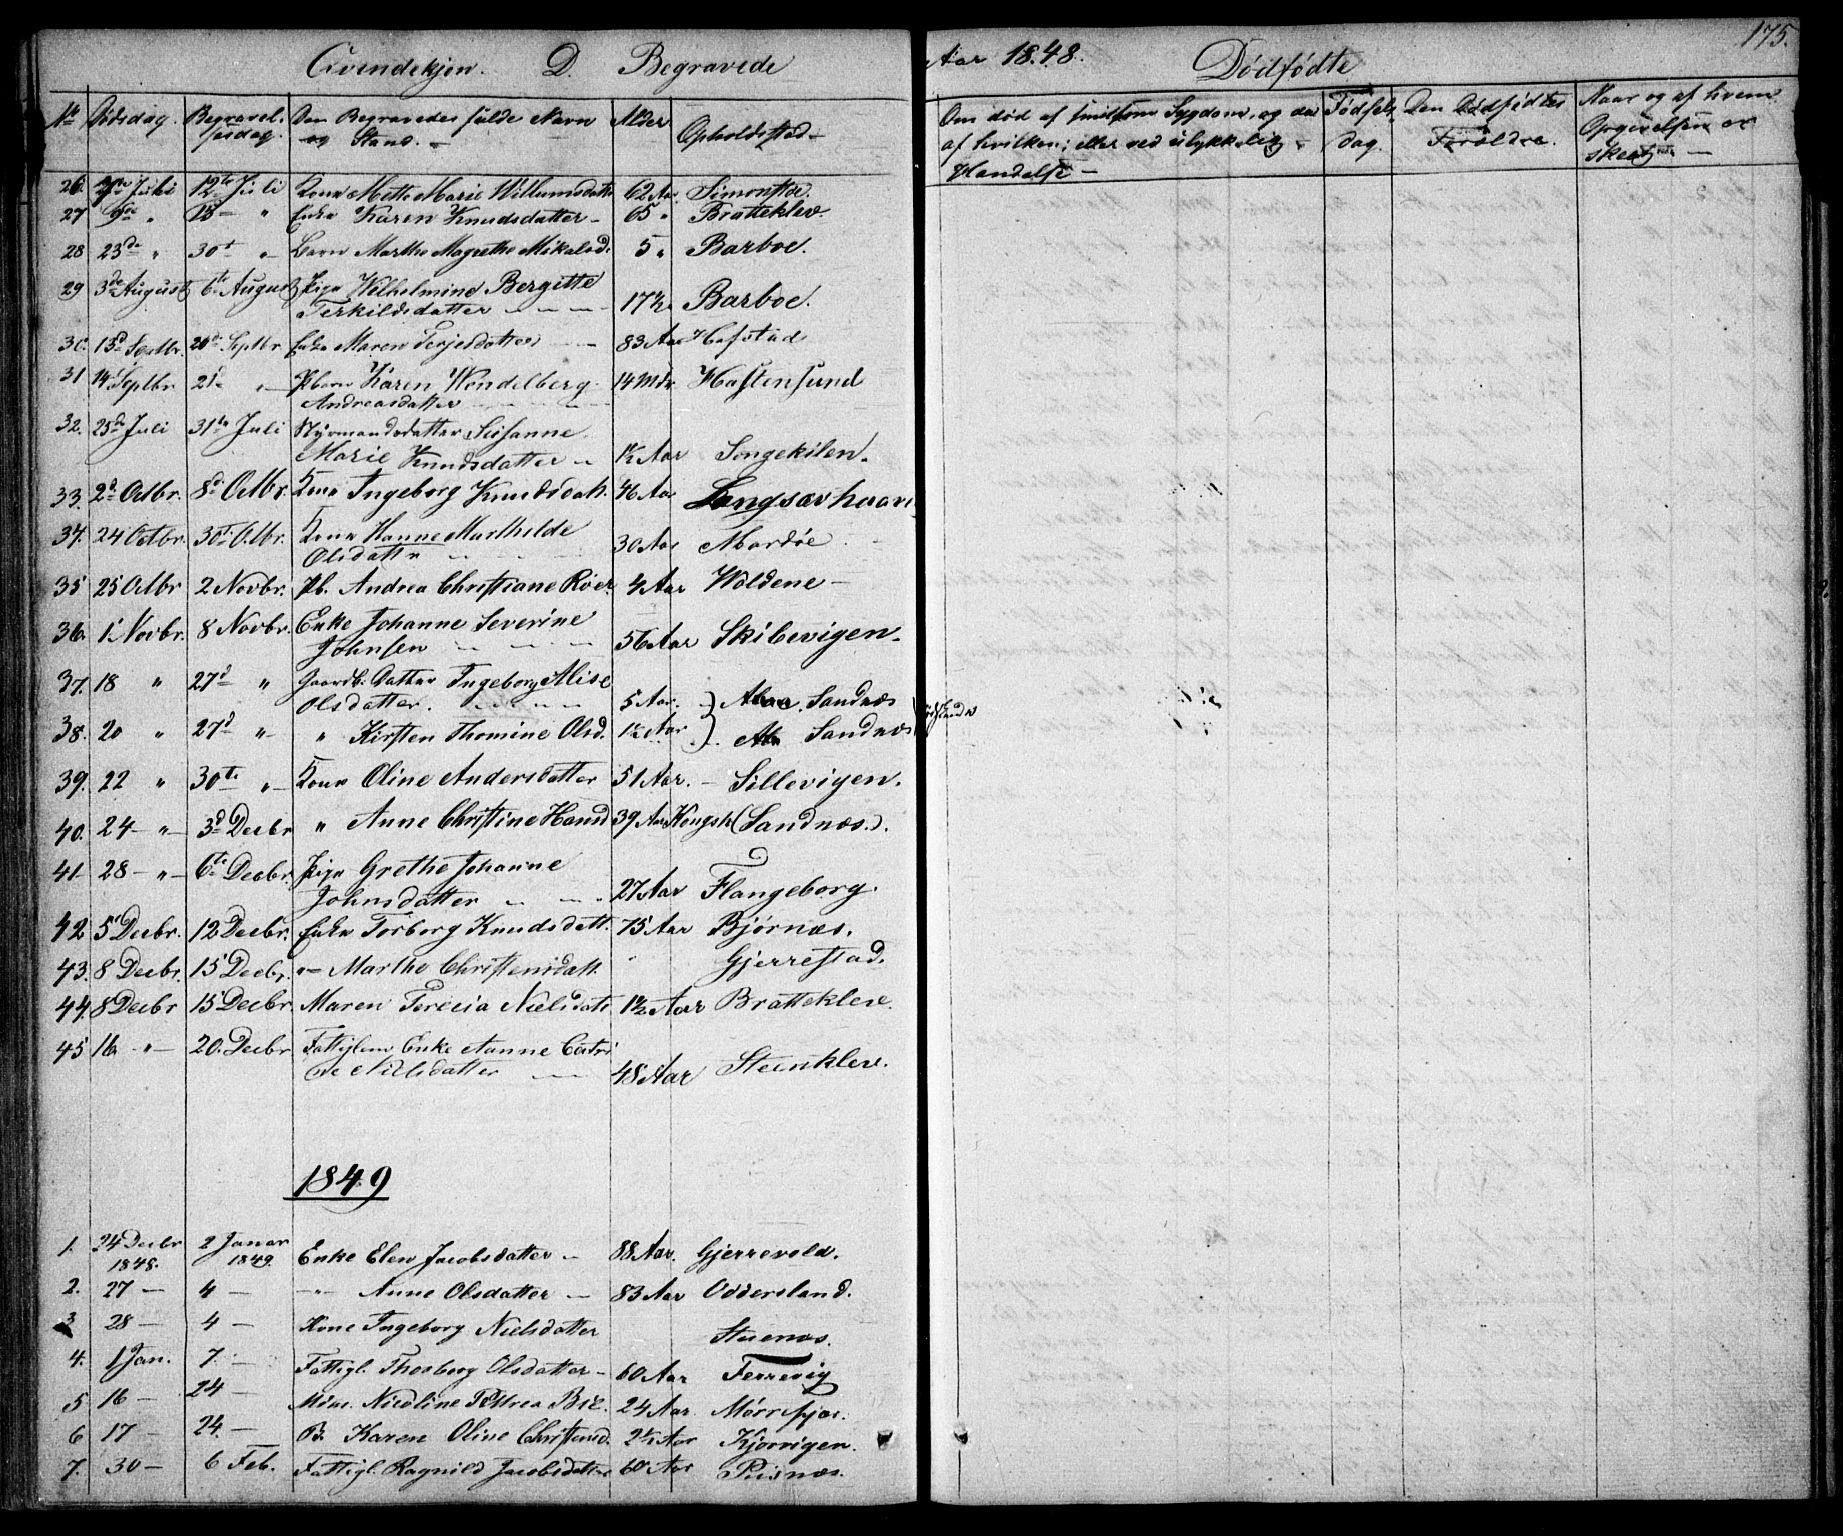 Qvindekjøn. D. Begravede Aar 1848. Dødfødte 175.
No Dødsdag. Begravelsesdag. Den Begravedes fulde Navn og Stand. Alder Opholdssted
Om død af smitsom Sygdom, og da af hvilken; eller ved ulykkelig Handelse
Fødselsdag.
Den Dødfødtes Forældre.
Naar og af hvem Opgivelsen er skeet
26. Juli 12te Juli Kona Mette Marie Willumsdatter 62 Aar Simonstøe.
27 9de " 13 " Enke Karen Knudsdatter 65 " Bratteklev.
28 23de " 30t " Barn Marthe Magrethe Mikalsd. 5 " Barboe.
29 3de August 6te August Pige Wilhelmine Bergitte
Terkildsdatter 17½ Barboe.
30. 13d Septbr. 20d Septbr Enke Maren Terjesdatter 83 Aar Hofstad
31 14 Septbr 21d " Pbarn Karen Wendelberg
Andreasdatter 14 Mdr. Hastensund
32. 25d Juli 31te Juli Styrmandsdatter Susanne
Marie Knudsdatter 1½ Aar Songekilen.
33. 2d Octbr. 8d Octbr. Kona Ingeborg Knudsdatt. 46 Aar Langsævhavn
34. 24 Octbr. 30t Octbr. Kona Hanne Marthilde
Olsdattr 30 Aar Mardøe
35 25 Octbr 2 Novbr. Pb. Andrea Christiane Röer 4 Aar Woldene
36. 1 Novbr. 8 Novbr. Enke Johanne Severine
Johnsen 56 Aar Skibevigen.
37. 18 " 27d " Gaardb. Datter Ingeborg Alise
Olsdatter. 5 Aar. Sandnæs
38. 20 " 27d " " Kirsten Thomine Olsd. 1½ Aar Sandnæs
39. 22 " 30te " Kona Oline Andersdatter 51 Aar. Sillevigen.
40. 24 " 3d Decbr " Anne Christine Hansd 39 Aar Kongsh (Sandnæs.)
41 28 " 6te Decbr. Pige Grethe Johanne
Johnsdatter 27 Aar Flangeborg.
42 5 Decbr. 12 Decbr. Enke Torborg Knudsdatt. 75 Aar Bjørnæs.
43. 8 Decbr. 15 Decbr. " Marthe Christensdatt. " Gjerrestad.
44. 8 Decbr 15 Decbr. Maren Terecia Nielsdatt 1½ Aar Bratteklev.
45 16 " 20. Decbr Fattiglem Enke Nanne Catri
ne Nielsdatter 48 Aar Steenklev.
1849
1. 24 Decbr 1848. 2 Januar 1849. Enke Elen Jacobsdatter 88 Aar. Gjerrevold.
2. 27 — 4 — " Anne Olsdatter 83 Aar Oddersland.
3 28 — 4 — Kone Ingeborg Nielsdatter Stuenæs.
4. 1 Jan. 7. — Fattigl. Thorborg Olsdatter 60 Aar Ferrevig
5 16 — 24 — Nicoline Petrea Bie. 24 Aar. Mørrefjær.
6 17 — 24. — B. Karen Oline Christensd. 2½ Aar Kjørvigen.
7. 30 — 6 Feb. Fattigl. Ragnild Jacobsdatter 60 Aar Pusnæs.